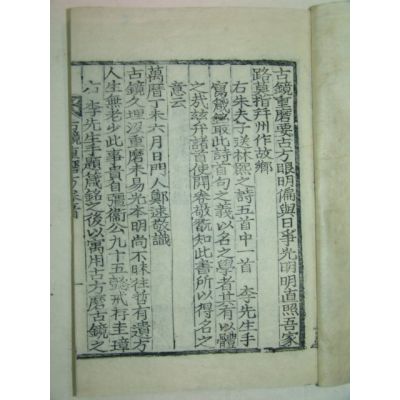 古鏡重磨要古方眼明偏與日爭光明明直照吾家
路莫指幷州作故鄕
右朱夫子送林熙之詩五首中一首 李先生手
寫箴銘取此詩首句之義以名之學者其有以體
之哉玆弁諸首使開卷敬觀知此書所以得名之
意云
萬曆丁未六月日門人鄭逑敬識
古鏡久埋沒重磨未易光本明尙不昧往哲有遺方
人生無老少此事貴自彊衞公九十五懿戒存圭璋
右李先生手題箴銘之後以寓用古方磨古鏡之
古鏡重磨方